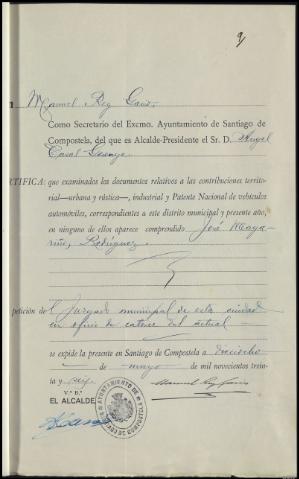 9
Manuel Rey Gario
Como Secretario del Excmo. Ayuntamiento de Santiago de
Compostela, del que es Alcalde-Presidente el Sr. D. Angel
Casal Gosenge
RTIFICA: que examinados los documentos relativos a las contribuciones territo-
rial—urbana y rústica—, industrial y Patente Nacional de vehículos
automóviles, correspondientes a este distrito municipal y presente año,
en ninguno de ellos aparece comprendido José Maga-
riños Rodríguez
petición del Juzgado municipal de esta ciudad
en oficio de catorce del actual
se expide la presente en Santiago de Compostela a dieciocho
de mayo de mil novecientos trein-
ta y seis
V.º B.º
EL ALCALDE
AYUNTAMIENTO DE